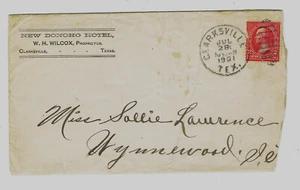 NEW DONOHO HOTEL,
W. H. WILCOX, PROPRIETOR.
CLARKSVILLE, - - - TEXAS.
CLARKSVILLE
JUL
28
1901
TEX.
Miss Sallie Lawrence
Wynnewood.